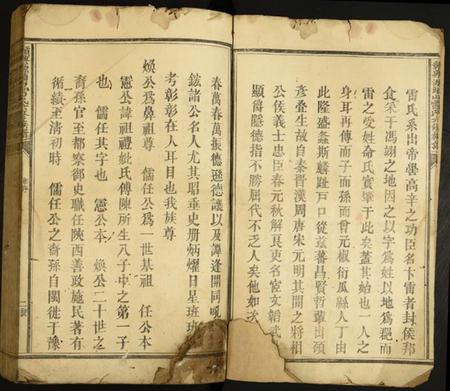 雷氏系出帝嚳高辛之功臣名卞雷者封侯邦
食采于馮翊之地因之以字為姓以地為郡而
雷之受姓命氏實肇于此矣蓋其始也一人之
身耳再傳而子而孫而曾元椒衍瓜縣人丁由
此隆盛螽斯麟趾戶口從茲蕃昌賢哲輩出頌
彥叠生故自秦晉漢周唐宋元明其間之將相
公侯義士忠臣春元秋解艮吏名宦文韜武
顯爵隱德指不勝屈代不乏人矣他如次
春萬春萬振德遜德議以及譚逢開同吼
鋐諸公名人尤其昭垂史册炳燿日星班班
考彰彰在人耳目也我族尊
煥公為鼻祖尊 儒任公為一世基祖 任公本
憲公諱祖禮妣氏傳陳所生八子中之第一子
也 儒任其字也 憲公本 煥公二十世之
裔孫官至都察御史職任陝西善政施民著有
循績至清初時 儒任公之裔孫自閩徙于豫